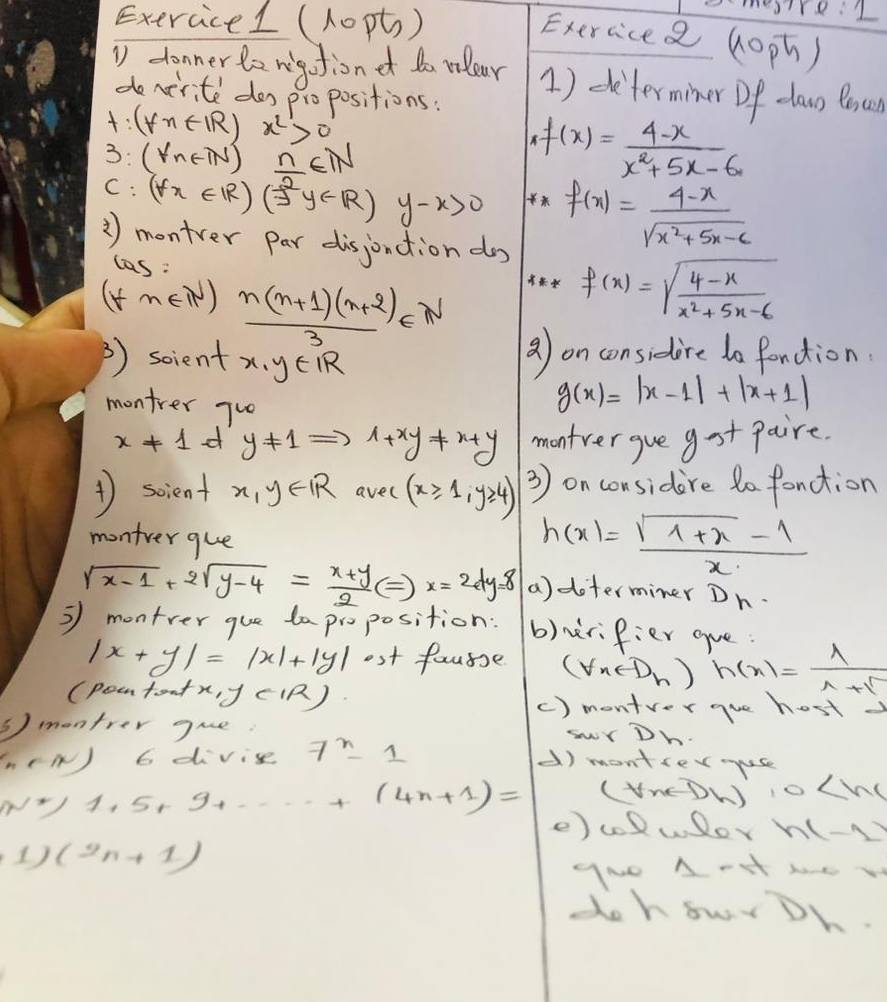 Exercice 1 (10pts)
1) donner la négation et la valeur
de vérité des propositions:
A:(∀x∈ℝ) x²>0
B: (∀n∈ℕ) n/2 ∈ℕ
C: (∀x ∈ℝ)(∃y∈ℝ) y-x>0
2) montrer par disjonction des
cas:
(∀ n∈ℕ) n(n+1)(n+2)/3 ∈ℕ
3) soient x,y∈ℝ
montrer que
x≠1 et y≠1 ⟹ 1+xy≠x+y
4) soient x,y∈ℝ avec (x≥1;y≥4)
montrer que
√x-1 + 2√y-4 = x+y/2 ⟺ x=2 et y=8
5) montrer que la proposition:
|x+y| = |x|+|y| est fausse
(pour tout x,y∈ℝ).
montrer que:
6 divise 7ⁿ-1
1+5+9+.....+(4n+1)=
1)(2n+1)
: 1
Exercice 2 (10pts)
1) déterminer Df dans les cas
* f(x) = 4-x / x²+5x-6
** f(x) = 4-x / √x²+5x-6
*** f(x) = √(4-x / x²+5x-6)
2) on considère la fonction:
g(x)= |x-1| + |x+1|
montrer que g est paire.
3) on considère la fonction
h(x)= √1+x - 1 / x
a) déterminer Dh.
b) vérifier que:
(∀x∈Dh) h(x)= 1 / 1+√
c) montrer que h est
sur Dh.
d) montrer que
(∀x∈Dh), 0<h(
e) calculer h(-1)
que 1 est une
de h sur Dh.